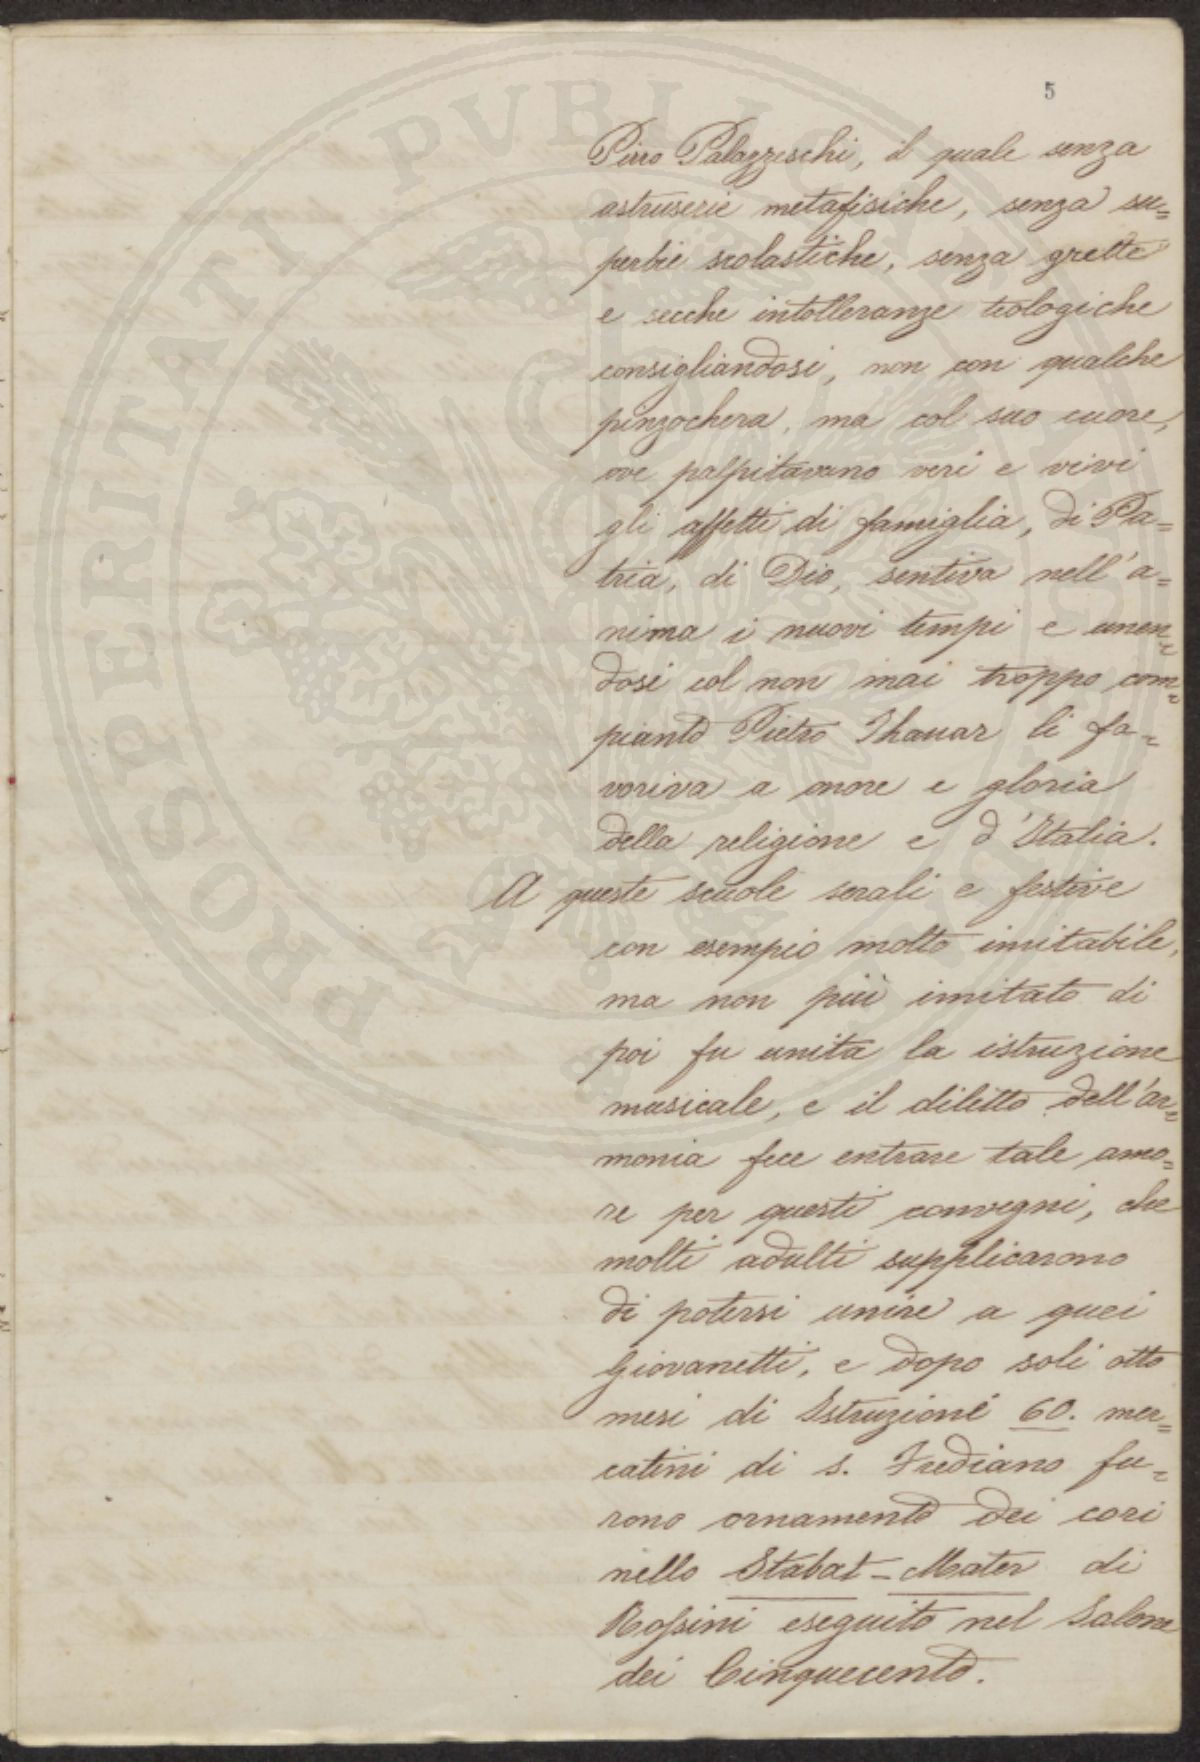 5
Pirro Palazzeschi, il quale senza
astruserie metafisiche, senza su=
perbie scolastiche, senza grette
e secche intolleranze teologiche
consigliandosi, non con qualche
pinzochera, ma col suo cuore,
ove palpitavano veri e vivi
gli affetti di famiglia, di Pa=
tria, di Dio, sentiva nell'a=
nima i nuovi tempi e unen=
dosi col non mai troppo com=
pianto Pietro Thouar li fa=
voriva a onore e gloria
della religione e d'Italia.
A queste scuole serali e festive
con esempio molto imitabile,
ma non più imitato di
poi fu unita la istruzione
musicale, e il diletto dell'ar=
monia fece entrare tale amo=
re per questi convegni, che
molti adulti supplicarono
di potersi unire a quei
Giovanetti, e dopo soli otto
mesi di Istruzione 60. mer=
catini di S. Frediano fu=
rono ornamento dei cori
nello Stabat-Mater di
Rossini eseguito nel Salone
dei Cinquecento.
PROSPERITATI PUBLICAE